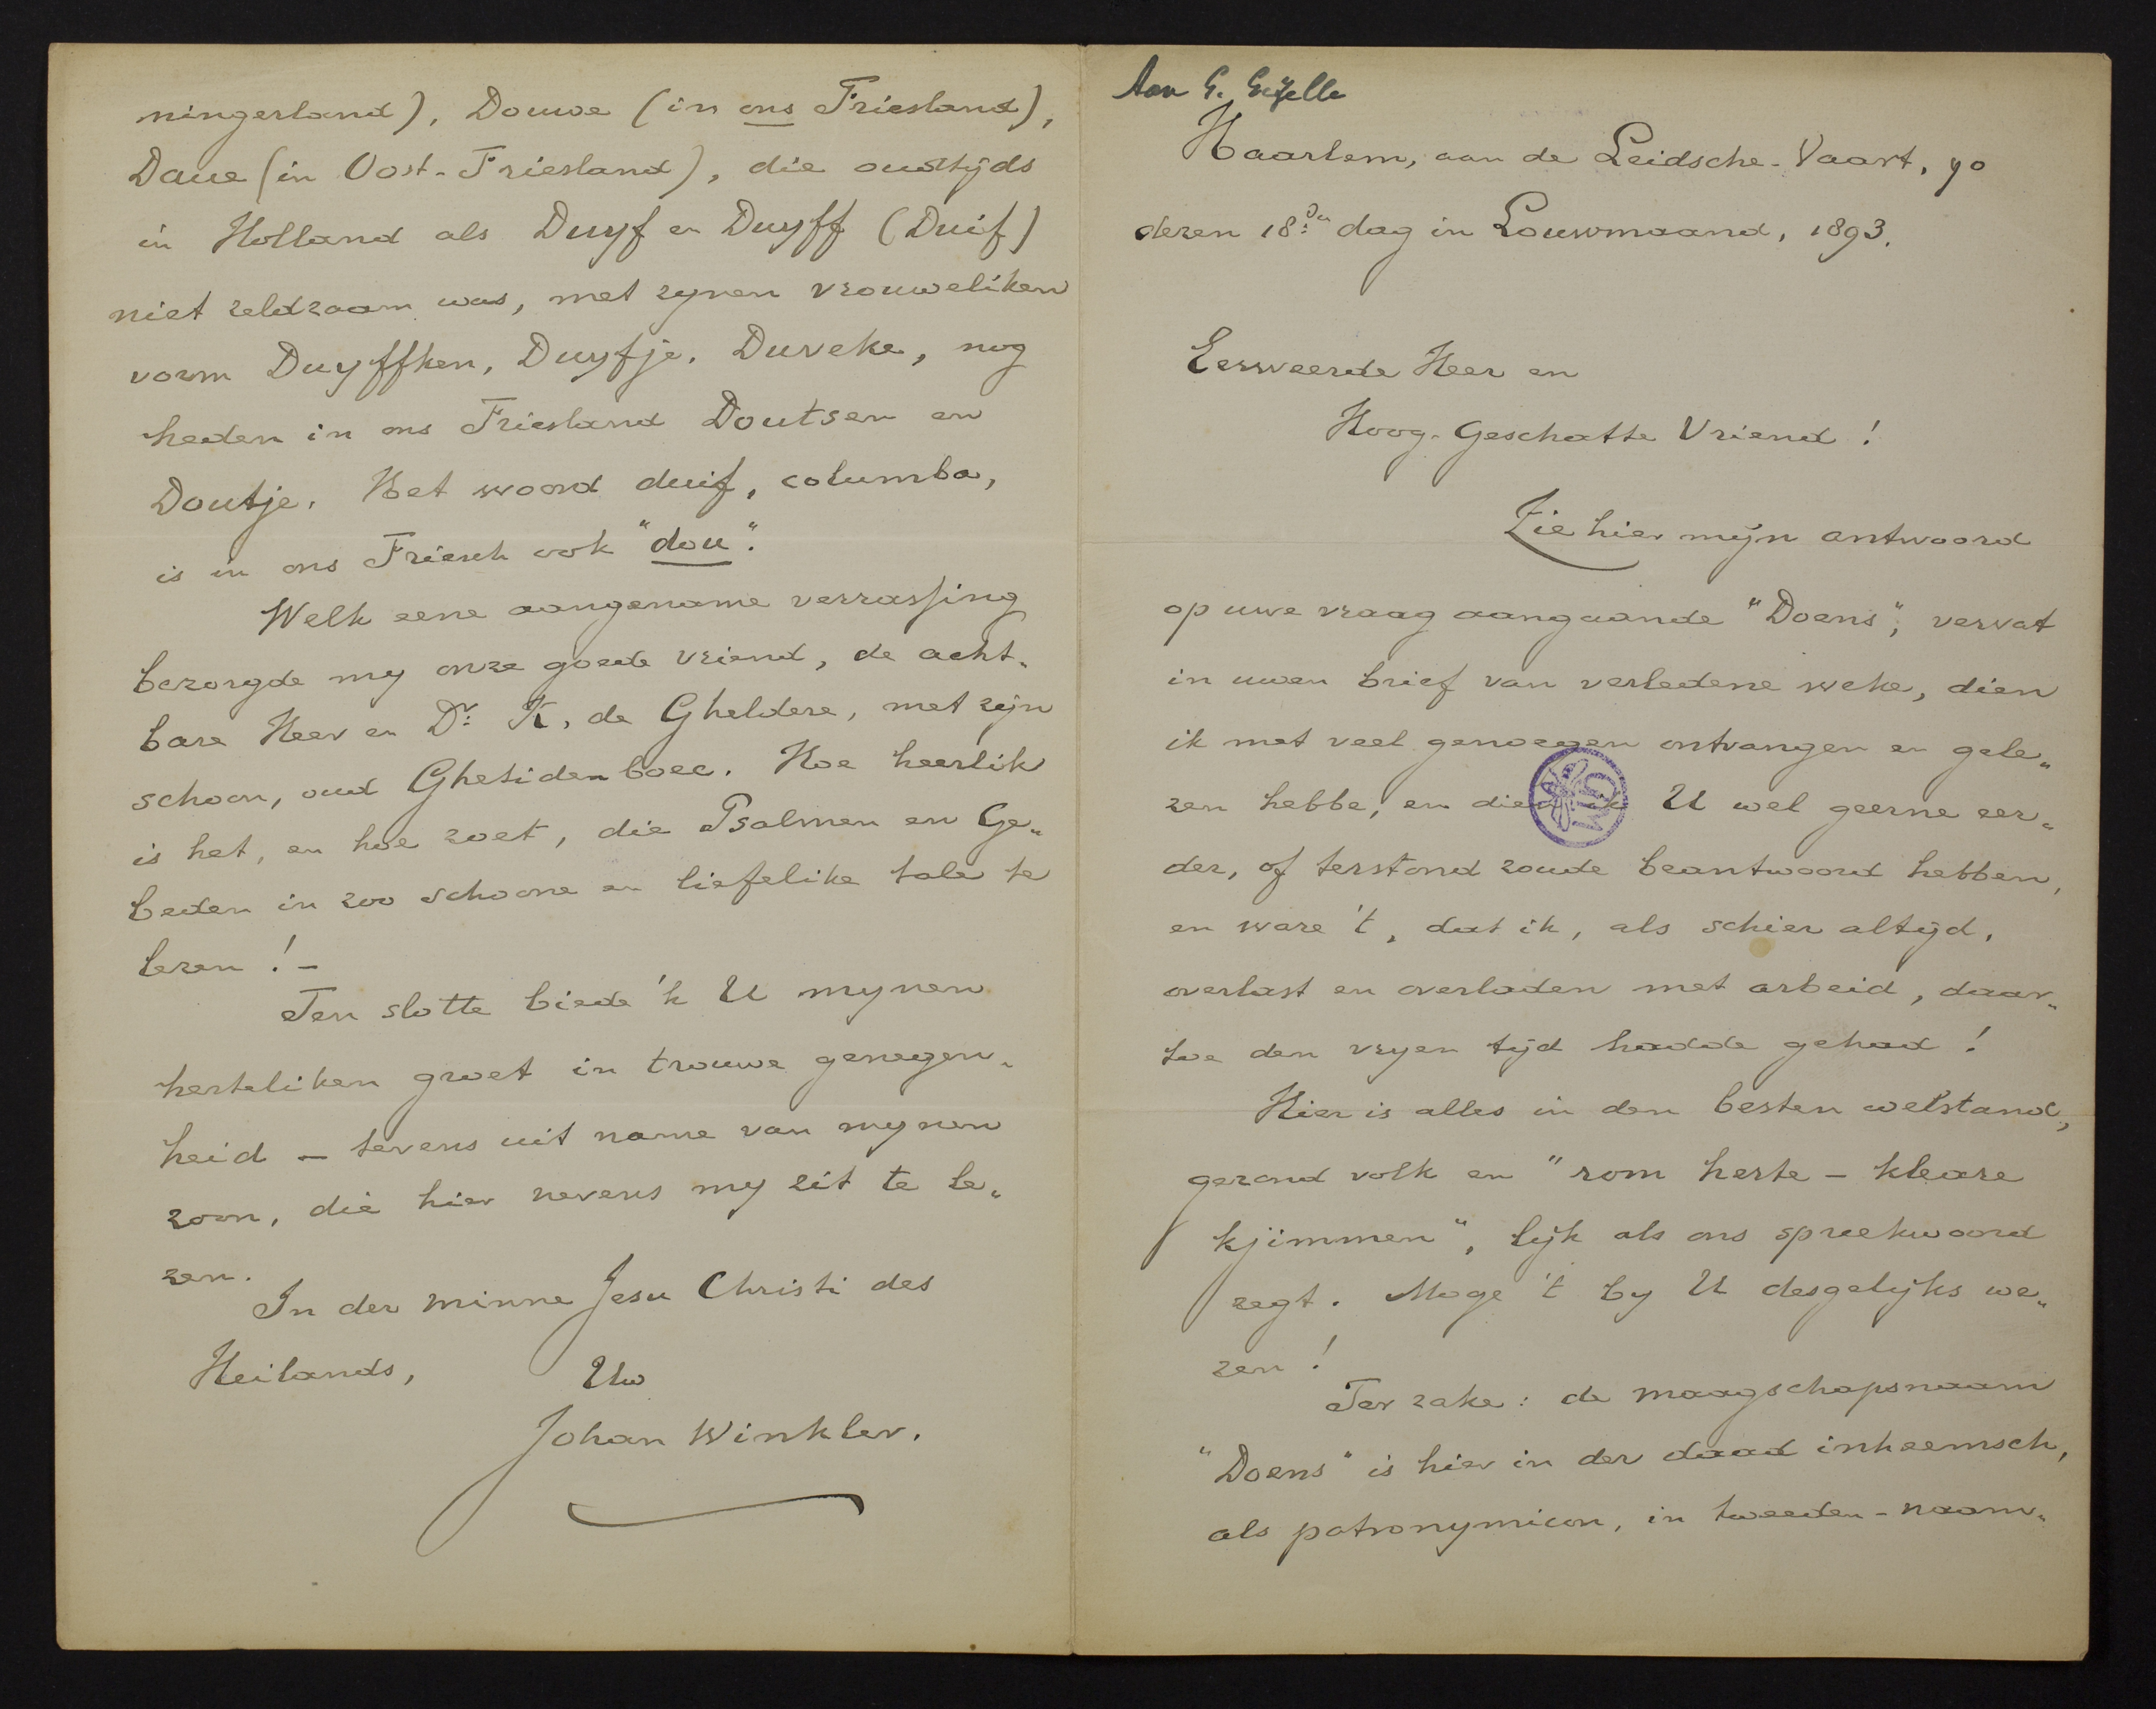 Aan G. Gezelle
Haarlem, aan de Leidsche-Vaart, 90
dezen 18den dag in Louwmaand, 1893.
Eerweerde Heer en
Hoog-Geschatte Vriend!
Zie hier mijn antwoord
op uwe vraag aangaande "Doens", vervat
in uwen brief van verledene weke, dien
ik met veel genoegen ontvangen en gele„
zen hebbe, en dien U wel geerne eer„
der, of terstond zoude beantwoord hebben,
en ware 't, dat ik, als schier altyd,
overlast en overladen met arbeid, daar„
toe den vryen tyd hadde gehad!
Hier is alles in den besten welstand,
gezond volk en "rom herte – kleare
kjimmen", lyk als ons spreekwoord
zegt. Moge 't by U desgelyks we„
zen!
Ter zake: de maagschapsnaam
"Doens" is hier in der daad inheemsch,
als patronymicon, in tweeden-naam„
ningerland), Douwe (in ons Friesland),
Daue (in Oost-Friesland), die oudtyds
in Holland als Duyf en Duyff (Duif)
niet zeldzaam was, met zynen vrouweliken
vorm Duyffken, Duyfje, Duveke, nog
heden in ons Friesland Doutsen en
Doutje. Het woord duif, columba,
is in ons Friesch ook "dou".
Welk eene aangename verrassing
bezorgde my onze goede vriend, de acht„
bare Heer en Dr. K. de Gheldere, met zijn
schoon, oud Ghetidenboec. Hoe heerlik
is het, en hoe zoet, die Psalmen en Ge„
beden in zoo schoone en liefelike tale te
lezen! –
Ten slotte biede 'k U mynen
herteliken groet in trouwe genegen„
heid – tevens uit name van mynen
zoon, die hier nevens my zit te le„
zen.
In der minne Jesu Christi des
Heilands, Uw
Johan Winkler.